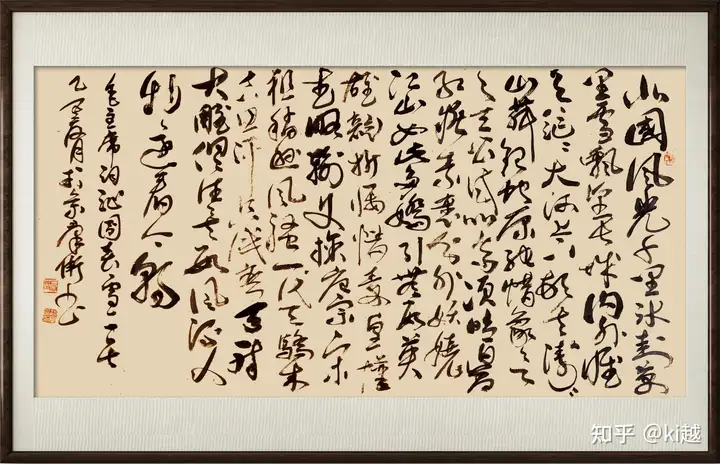 北國风光千里冰封萬
里雪飘望長城内外惟
大河上下頓失滔〻
山舞银蛇原驰蜡象欲与
天公试比高须晴日看
红装素裹分外妖娆
江山如此多娇引無数英
雄竞折腰惜秦皇漢
武略输文采唐宗宋
祖稍逊风骚一代天骄成
吉思汗只识弯弓射
大雕俱往矣数风流人
物还看今朝
毛主席沁园春雪一首
知乎 @ki越